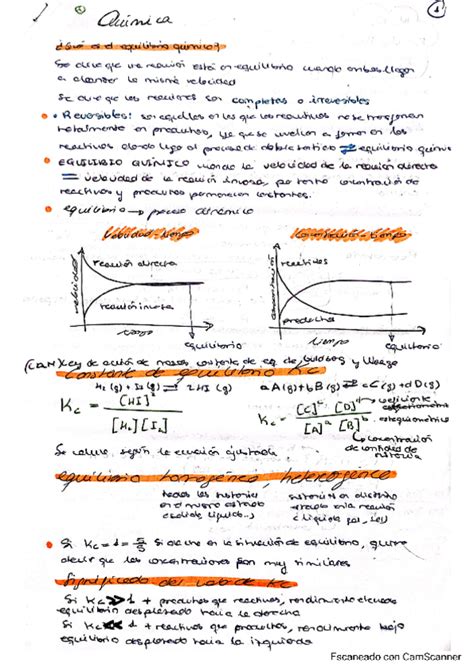 Química
1
¿Qué es el equilibrio químico?
Se dice que una reacción está en equilibrio cuando ambas llegan
a alcanzar la misma velocidad
Se dice que las reacciones son completas o irreversibles
• Reversibles: son aquellas en las que los reactivos no se transforman
totalmente en productos, ya que se vuelven a formar en los
reactivos dando lugar al proceso de doble sentido ⇌ equilibrio químico
• EQUILIBRIO QUÍMICO cuando la velocidad de la reacción directa
= velocidad de la reacción inversa, por tanto concentración de
reactivos y productos permanecen constantes.
• equilibrio → proceso dinámico
Velocidad - tiempo
Concentración - tiempo
velocidad
reacción directa
reacción inversa
tiempo
equilibrio
concentración
reactivos
productos
tiempo
equilibrio
Ley de acción de masas constante de eq. de Guldberg y Waage
Constante de equilibrio Kc
H₂ (g) + I₂ (g) ⇌ 2HI (g)
aA(g) + bB(g) ⇌ cC(g) + dD(g)
Kc = [HI]² / [H₂][I₂]
Kc = [C]ᶜ [D]ᵈ / [A]ᵃ [B]ᵇ
estequiométrico
concentración
de cantidad de
Se calcula según la ecuación ajustada
equilibrio homogéneo, heterogéneo
todas las sustancias
en el mismo estado
(sólido, líquido...)
sustancias en distinto
estado en la reacción
(líquido, gas,
• Si Kc = 1 = 5/5 Si ocurre en la situación de equilibrio, quiere
decir que las concentraciones son muy similares
Significado del valor de Kc
Si Kc >> 1 + productos que reactivos, rendimiento elevado
equilibrio desplazado hacia la derecha
Si Kc << 1 + reactivos que productos, rendimiento bajo
equilibrio desplazado hacia la izquierda
Escaneado con CamScanner